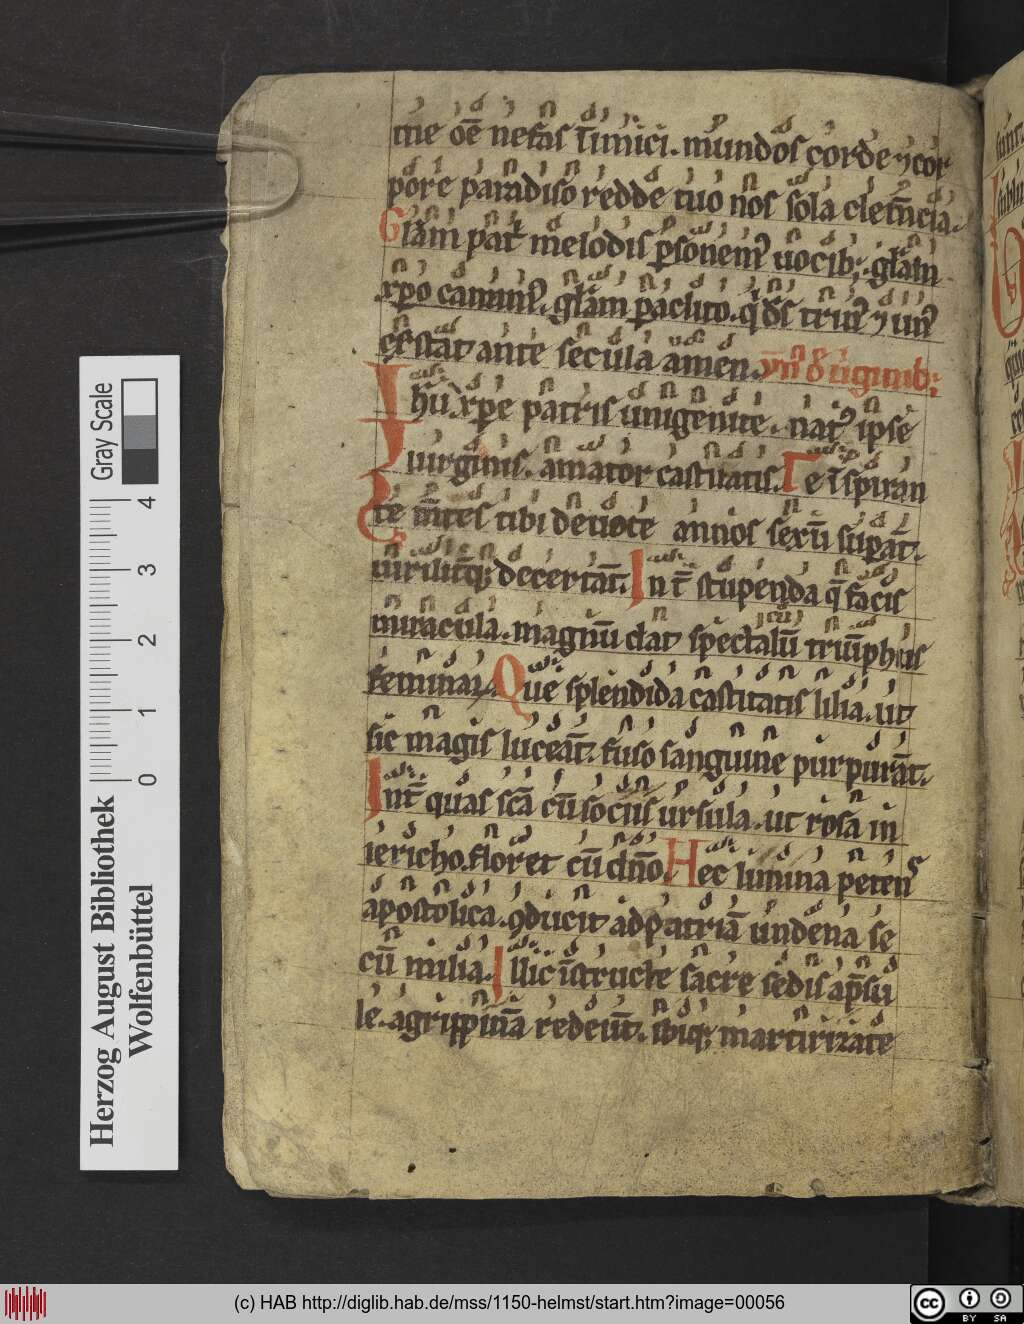 me oē nefas t̄imici. mundos corde ⁊ cor
pore paradiso redde tuo nos sola clem̄cia.
Glam̄ pat̄ melodis ꝑsonem⁹ uocib; glām
xp̄o canim⁹. glām paclito. q̇ ds̄ trin⁹ ⁊ un⁹
exstat ante secula amen. ym̄ d̄ u̇ginib;
Ihū xp̄e patris unigenite. nat⁹ ipse
uirginis. amator castitatis. Te īspiran
te m̄tes tibi deuote annos sexū suꝑāt.
uirilit̄q; decertāt. In t̄ stupenda q̄ facis
miracula. magnū dat spectaclū triūphus
feminaꝝ. Que splendida castitatis lilia. ut
sic magis luceāt. fuso sanguine purpurāt.
Int̄ quas scā cū sociis ursula. ut rosa in
iericho. floret cū dn̄o. Hec limina petens
apostolica. ꝯducit ad patriā undena se
cū milia. Illic īstructe sacre sedis ap̄su
le. agrippinā redeūt. ibiq; martirizate
Herzog August Bibliothek
Wolfenbüttel
0 1 2 3 4
Gray Scale
(c) HAB http://diglib.hab.de/mss/1150-helmst/start.htm?image=00056
cc BY SA